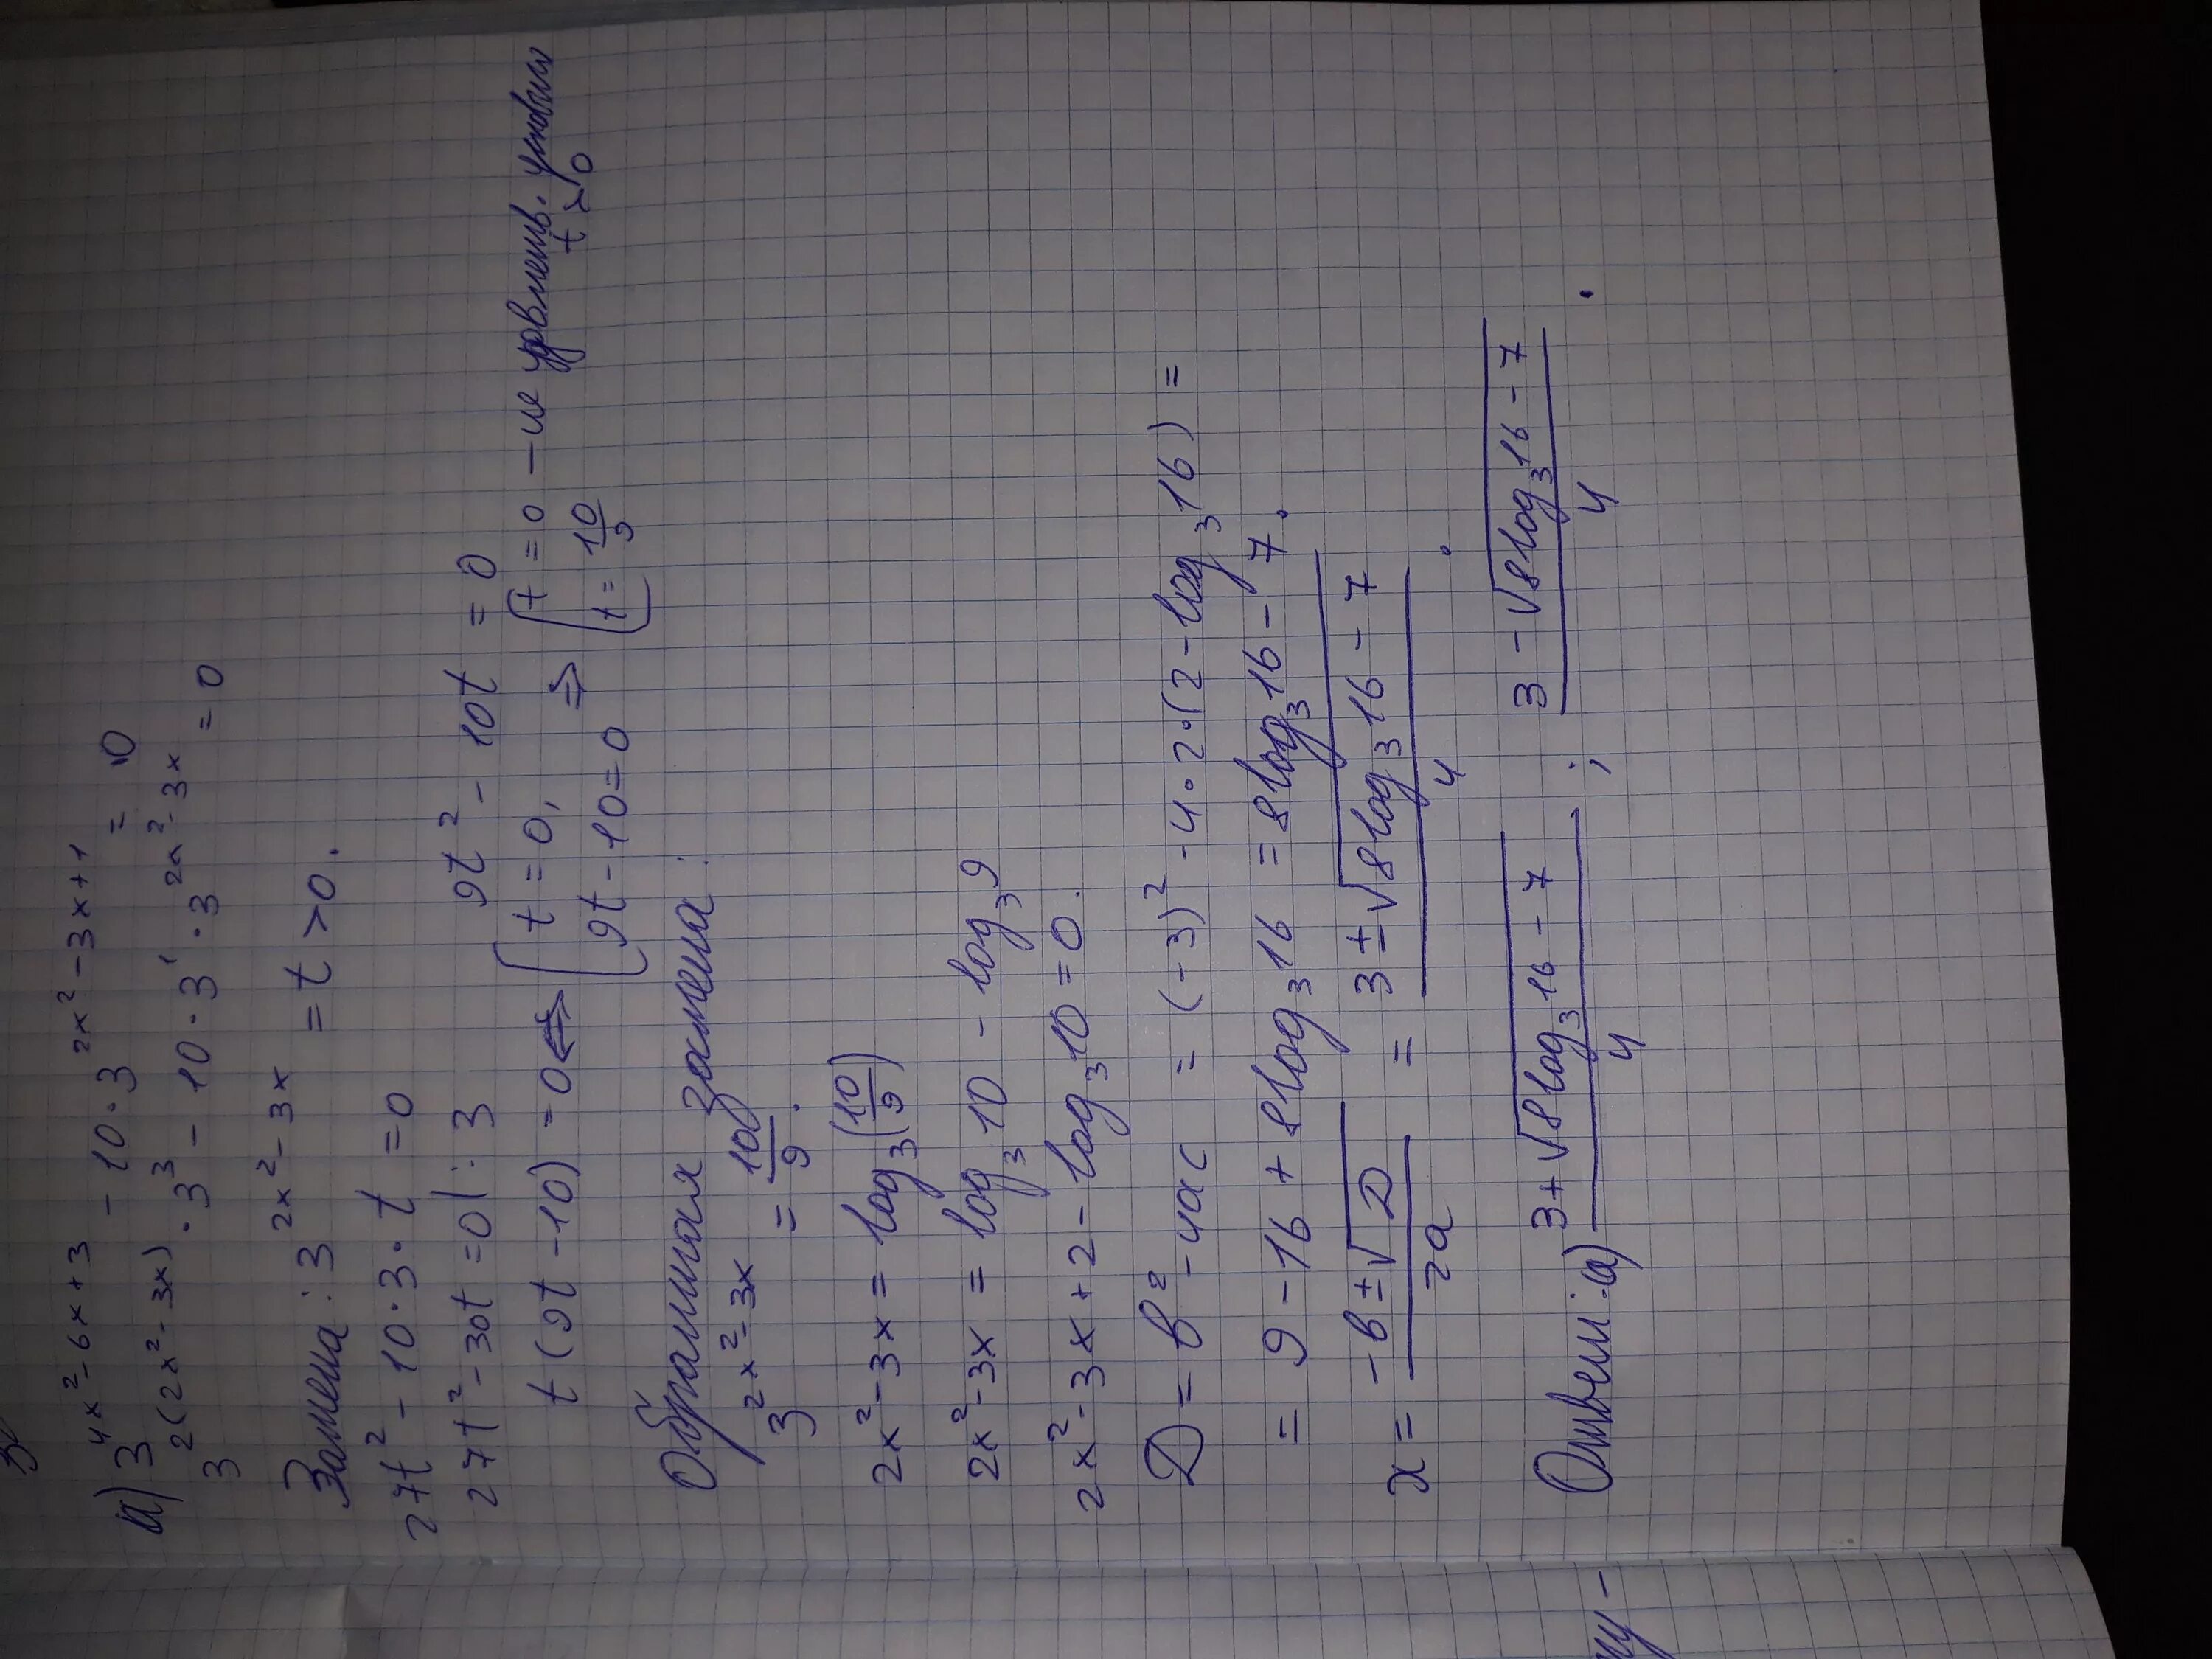 а) 3^{4x²-6x+3} - 10·3^{2x²-3x+1} = 0
3^{2(2x²-3x)}·3³ - 10·3¹·3^{2x²-3x} = 0
Замена: 3^{2x²-3x} = t > 0.
27t² - 10·3·t = 0
27t² - 30t = 0 | : 3 9t² - 10t = 0
t(9t - 10) = 0 ⇔ [ t = 0, 9t - 10 = 0 ⇒ [ t = 0 - не удовлетв. условию t > 0 t = 10/9
Обратная замена:
3^{2x²-3x} = 10/9.
2x² - 3x = log₃(10/9)
2x² - 3x = log₃10 - log₃9
2x² - 3x + 2 - log₃10 = 0.
D = b² - 4ac = (-3)² - 4·2·(2 - log₃16) =
= 9 - 16 + 8log₃16 = 8log₃16 - 7.
x = (-b ± √D)/2a = (3 ± √(8log₃16 - 7))/4.
Ответ: а) (3 + √(8log₃16 - 7))/4 ; (3 - √(8log₃16 - 7))/4.